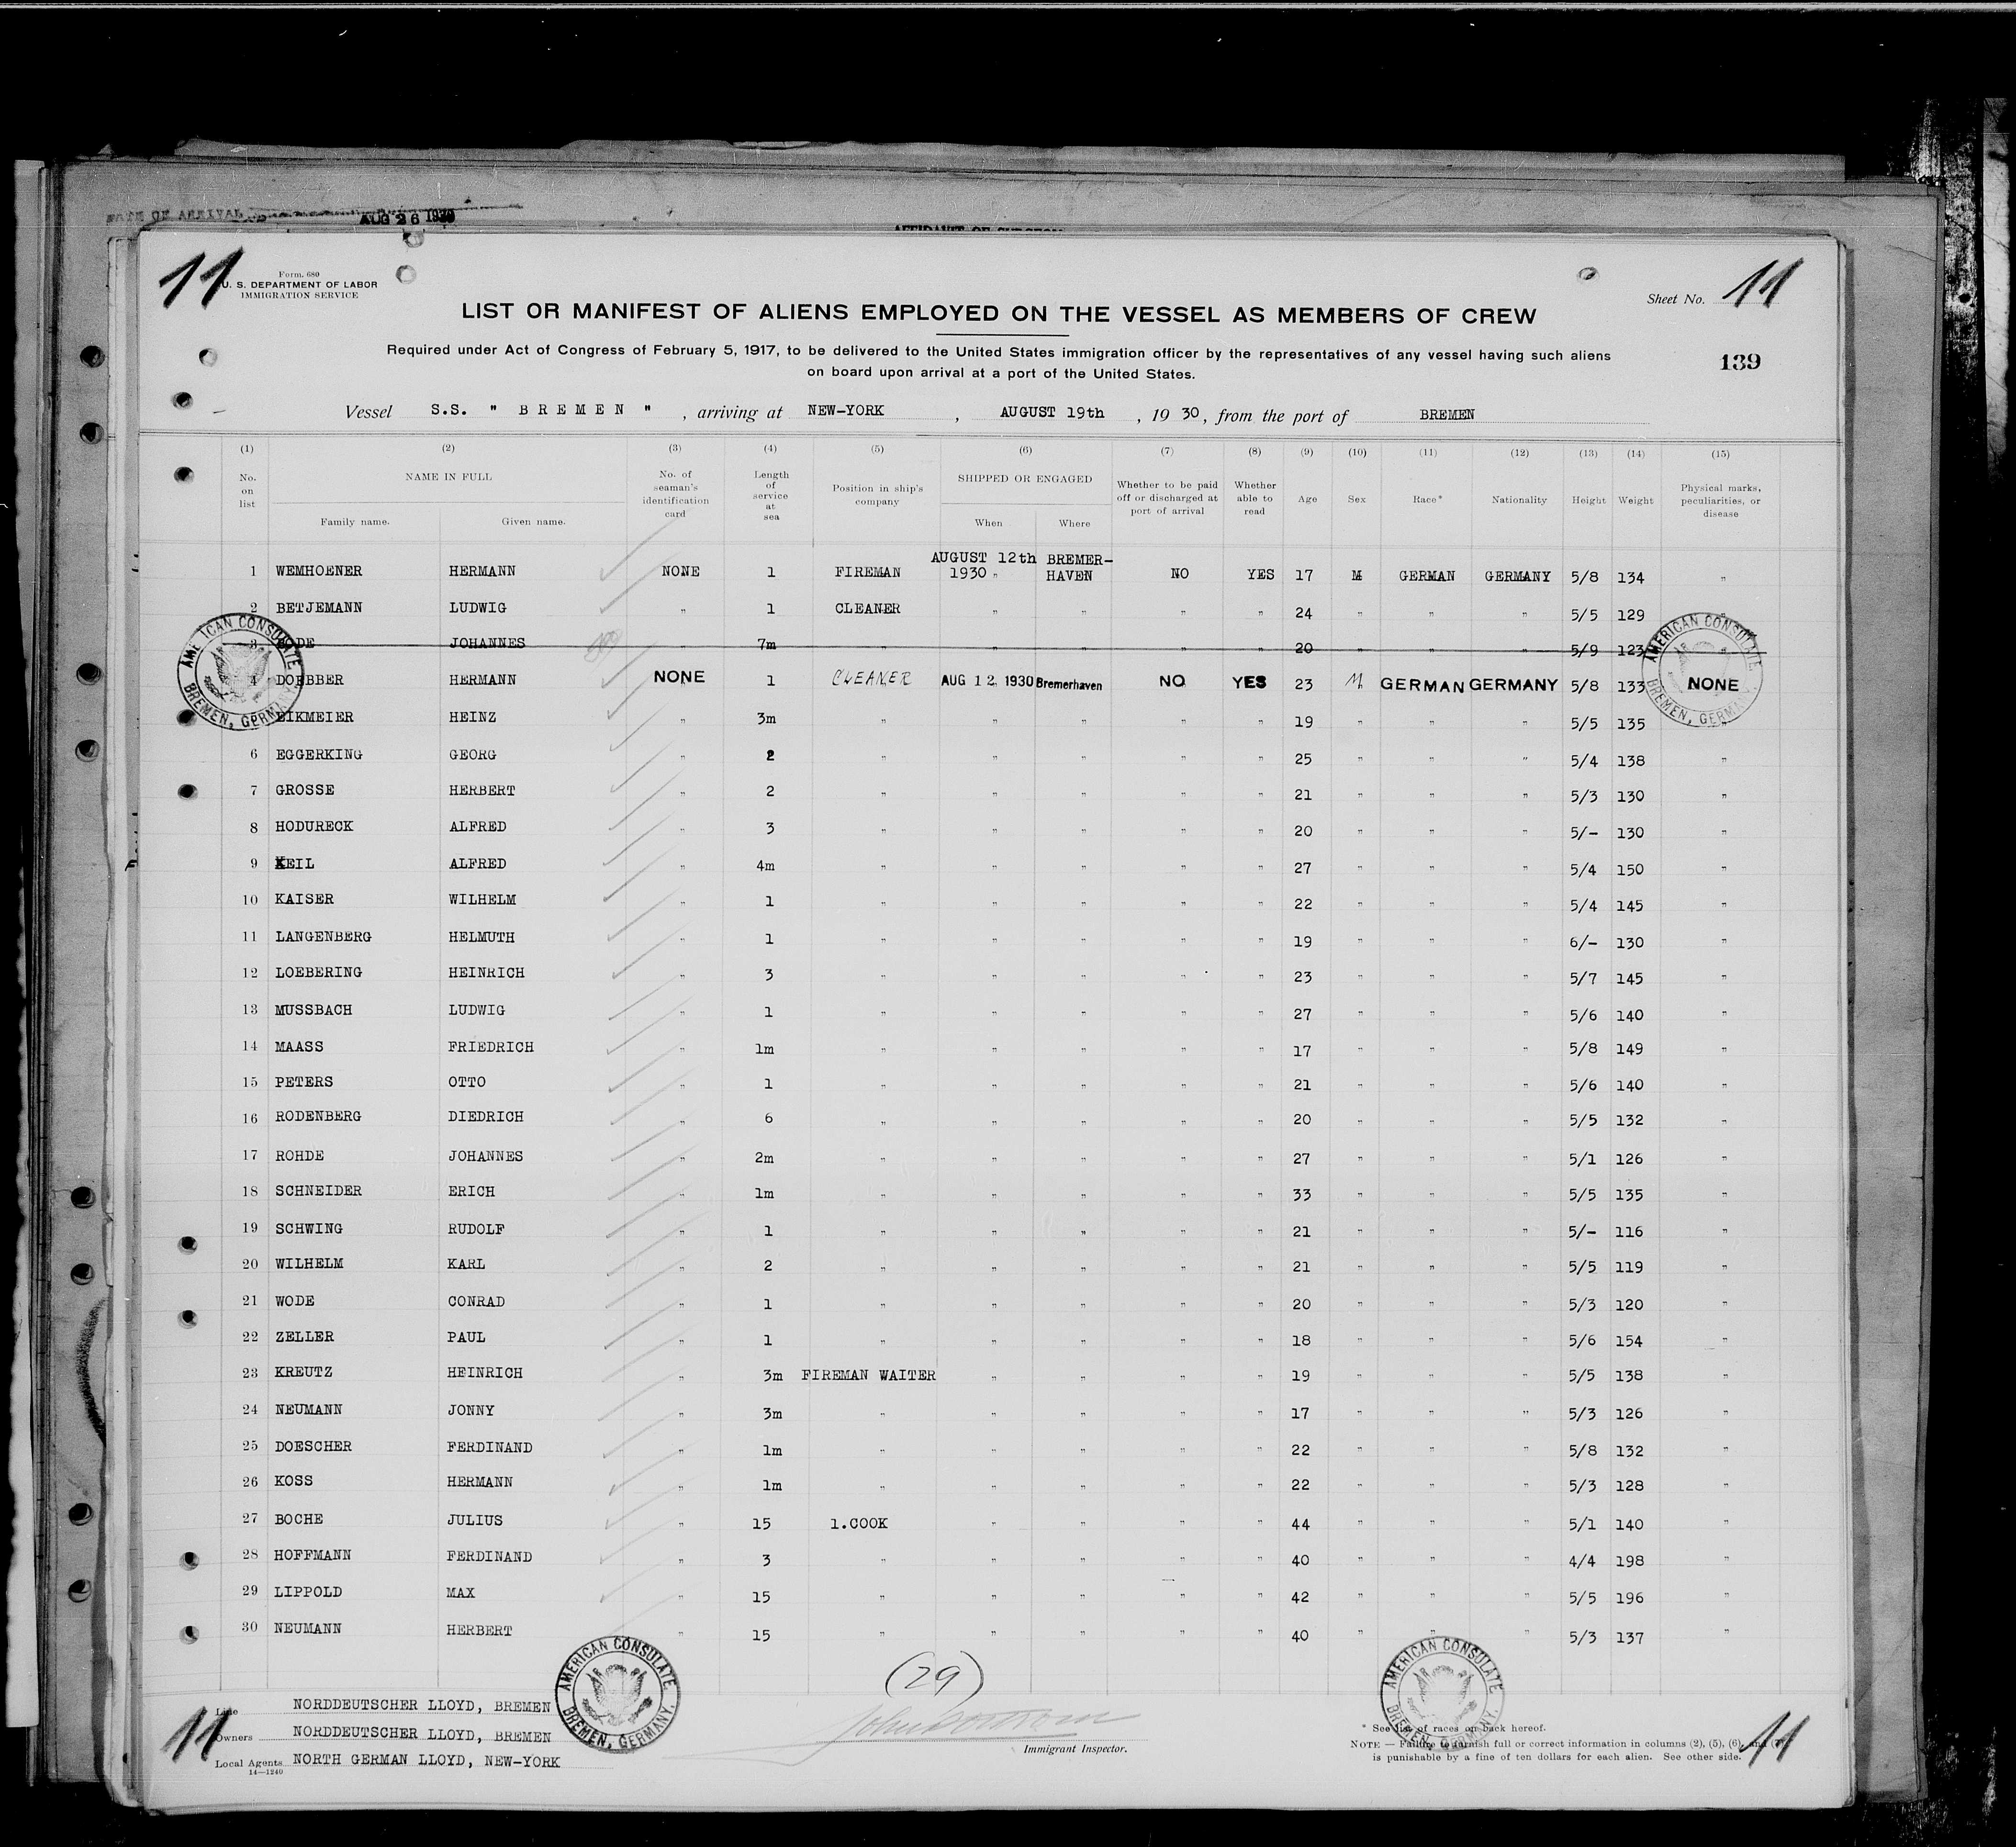 AUG 26 1930
11
Form. 680
U. S. DEPARTMENT OF LABOR
IMMIGRATION SERVICE
Sheet No. 11
LIST OR MANIFEST OF ALIENS EMPLOYED ON THE VESSEL AS MEMBERS OF CREW
Required under Act of Congress of February 5, 1917, to be delivered to the United States immigration officer by the representatives of any vessel having such aliens
on board upon arrival at a port of the United States.
139
Vessel S.S. " BREMEN " , arriving at NEW-YORK , AUGUST 19th , 19 30, from the port of BREMEN
(1) (2) (3) (4) (5) (6) (7) (8) (9) (10) (11) (12) (13) (14) (15)
No. on list NAME IN FULL Family name. Given name. No. of seaman's identification card Length of service at sea Position in ship's company SHIPPED OR ENGAGED When Where Whether to be paid off or discharged at port of arrival Whether able to read Age Sex Race* Nationality Height Weight Physical marks, peculiarities, or disease
1 WEMHOENER HERMANN NONE 1 FIREMAN AUGUST 12th 1930 " BREMER-HAVEN NO YES 17 M GERMAN GERMANY 5/8 134 "
2 BETJEMANN LUDWIG " 1 CLEANER " " " " 24 " " " 5/5 129 "
3 JOHANNES " 7m " " " " " 20 " " " 5/9 123
4 DOEBBER HERMANN NONE 1 CLEANER AUG 12 1930 Bremerhaven NO YES 23 M GERMAN GERMANY 5/8 133 NONE
EIKMEIER HEINZ " 3m " " " " " 19 " " " 5/5 135 "
6 EGGERKING GEORG " 2 " " " " " 25 " " " 5/4 138 "
7 GROSSE HERBERT " 2 " " " " " 21 " " " 5/3 130 "
8 HODURECK ALFRED " 3 " " " " " 20 " " " 5/- 130 "
9 KEIL ALFRED " 4m " " " " " 27 " " " 5/4 150 "
10 KAISER WILHELM " 1 " " " " " 22 " " " 5/4 145 "
11 LANGENBERG HELMUTH " 1 " " " " " 19 " " " 6/- 130 "
12 LOEBERING HEINRICH " 3 " " " " " 23 " " " 5/7 145 "
13 MUSSBACH LUDWIG " 1 " " " " " 27 " " " 5/6 140 "
14 MAASS FRIEDRICH " 1m " " " " " 17 " " " 5/8 149 "
15 PETERS OTTO " 1 " " " " " 21 " " " 5/6 140 "
16 RODENBERG DIEDRICH " 6 " " " " " 20 " " " 5/5 132 "
17 ROHDE JOHANNES " 2m " " " " " 27 " " " 5/1 126 "
18 SCHNEIDER ERICH " 1m " " " " " 33 " " " 5/5 135 "
19 SCHWING RUDOLF " 1 " " " " " 21 " " " 5/- 116 "
20 WILHELM KARL " 2 " " " " " 21 " " " 5/5 119 "
21 WODE CONRAD " 1 " " " " " 20 " " " 5/3 120 "
22 ZELLER PAUL " 1 " " " " " 18 " " " 5/6 154 "
23 KREUTZ HEINRICH " 3m FIREMAN WAITER " " " " 19 " " " 5/5 138 "
24 NEUMANN JONNY " 3m " " " " " 17 " " " 5/3 126 "
25 DOESCHER FERDINAND " 1m " " " " " 22 " " " 5/8 132 "
26 KOSS HERMANN " 1m " " " " " 22 " " " 5/3 128 "
27 BOCHE JULIUS " 15 1.COOK " " " " 44 " " " 5/1 140 "
28 HOFFMANN FERDINAND " 3 " " " " " 40 " " " 4/4 198 "
29 LIPPOLD MAX " 15 " " " " " 42 " " " 5/5 196 "
30 NEUMANN HERBERT " 15 " " " " " 40 " " " 5/3 137 "
AMERICAN CONSULATE BREMEN, GERMANY.
AMERICAN CONSULATE BREMEN, GERMANY.
AMERICAN CONSULATE BREMEN, GERMANY.
AMERICAN CONSULATE BREMEN, GERMANY.
(29)
Line NORDDEUTSCHER LLOYD, BREMEN
Owners NORDDEUTSCHER LLOYD, BREMEN
Local Agents NORTH GERMAN LLOYD, NEW-YORK
14—1240
11
Immigrant Inspector.
* See list of races on back hereof.
NOTE — Failure to furnish full or correct information in columns (2), (5), (6), and (7)
is punishable by a fine of ten dollars for each alien. See other side.
11